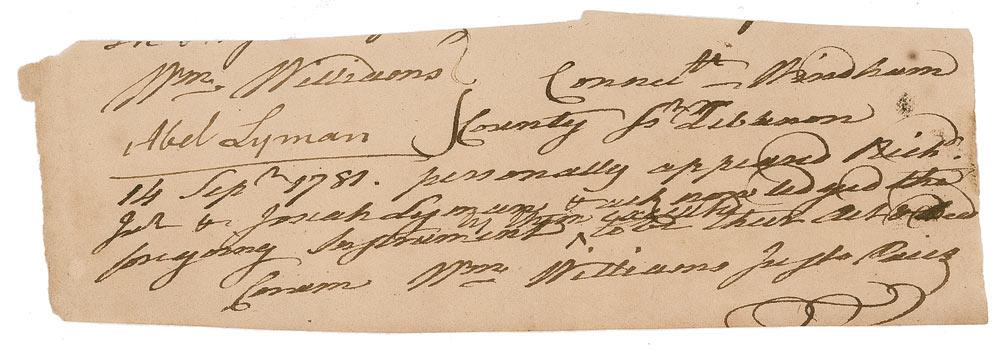 Wm. Williams } Connectt Windham
Abel Lyman } County Ss. Lebanon
14 Sepr. 1781. personally appeared Richd.
& Josiah Lyman & acknowledged the
foregoing Instrument to be their Act & Deed
Coram Wm Williams Just. Pacis